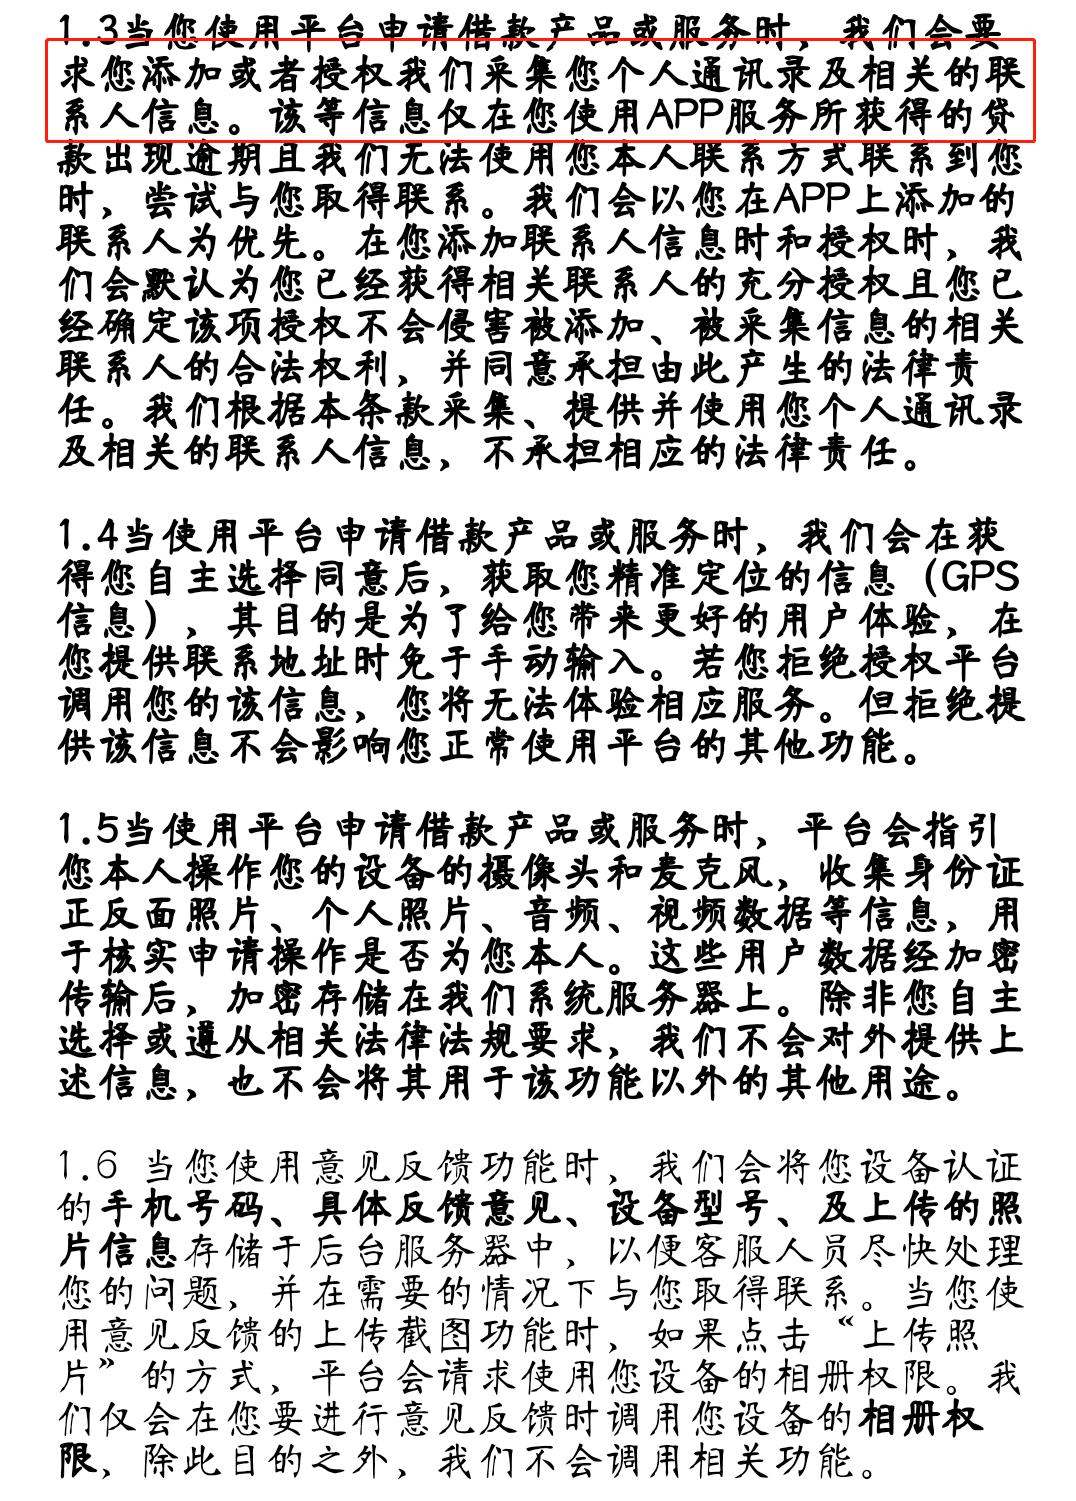 1.3当您使用平台申请借款产品或服务时，我们会要
求您添加或者授权我们采集您个人通讯录及相关的联
系人信息。该等信息仅在您使用APP服务所获得的贷
款出现逾期且我们无法使用您本人联系方式联系到您
时，尝试与您取得联系。我们会以您在APP上添加的
联系人为优先。在您添加联系人信息时和授权时，我
们会默认为您已经获得相关联系人的充分授权且您已
经确定该项授权不会侵害被添加、被采集信息的相关
联系人的合法权利，并同意承担由此产生的法律责
任。我们根据本条款采集、提供并使用您个人通讯录
及相关的联系人信息，不承担相应的法律责任。
1.4当使用平台申请借款产品或服务时，我们会在获
得您自主选择同意后，获取您精准定位的信息（GPS
信息），其目的是为了给您带来更好的用户体验，在
您提供联系地址时免于手动输入。若您拒绝授权平台
调用您的该信息，您将无法体验相应服务。但拒绝提
供该信息不会影响您正常使用平台的其他功能。
1.5当使用平台申请借款产品或服务时，平台会指引
您本人操作您的设备的摄像头和麦克风，收集身份证
正反面照片、个人照片、音频、视频数据等信息，用
于核实申请操作是否为您本人。这些用户数据经加密
传输后，加密存储在我们系统服务器上。除非您自主
选择或遵从相关法律法规要求，我们不会对外提供上
述信息，也不会将其用于该功能以外的其他用途。
1.6 当您使用意见反馈功能时，我们会将您设备认证
的手机号码、具体反馈意见、设备型号、及上传的照
片信息存储于后台服务器中，以便客服人员尽快处理
您的问题，并在需要的情况下与您取得联系。当您使
用意见反馈的上传截图功能时，如果点击“上传照
片”的方式，平台会请求使用您设备的相册权限。我
们仅会在您要进行意见反馈时调用您设备的相册权
限，除此目的之外，我们不会调用相关功能。